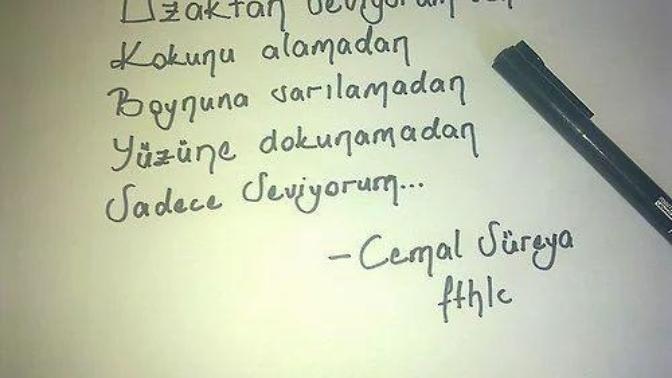 Uzaktan seviyorum seni
Kokunu alamadan
Boynuna sarılamadan
Yüzüne dokunamadan
Sadece Seviyorum...
-Cemal Süreya
fthlc